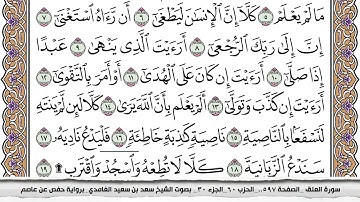 مَا لَمْ يَعْلَمْ ٥ كَلَّا إِنَّ الْإِنسَٰنَ لَيَطْغَىٰٓ ٦ أَن رَّءَاهُ اسْتَغْنَىٰٓ ٧
إِنَّ إِلَىٰ رَبِّكَ الرُّجْعَىٰٓ ٨ أَرَءَيْتَ الَّذِي يَنْهَىٰ ٩ عَبْدًا
إِذَا صَلَّىٰٓ ١٠ أَرَءَيْتَ إِن كَانَ عَلَى الْهُدَىٰٓ ١١ أَوْ أَمَرَ بِالتَّقْوَىٰٓ ١٢
أَرَءَيْتَ إِن كَذَّبَ وَتَوَلَّىٰٓ ١٣ أَلَمْ يَعْلَم بِأَنَّ اللَّهَ يَرَىٰ ١٤ كَلَّا لَئِن لَّمْ يَنتَهِ
لَنَسْفَعًۢا بِالنَّاصِيَةِ ١٥ نَاصِيَةٍ كَٰذِبَةٍ خَاطِئَةٍ ١٦ فَلْيَدْعُ نَادِيَهُۥ ١٧
سَنَدْعُ الزَّبَانِيَةَ ١٨ كَلَّا لَا تُطِعْهُ وَاسْجُدْ وَاقْتَرِب ۩ ١٩
سورة العلق _الصفحة ٥٩٧_ الحزب ٦٠_الجزء ٣٠_ بصوت الشيخ سعد بن سعيد الغامدي_ برواية حفص عن عاصم